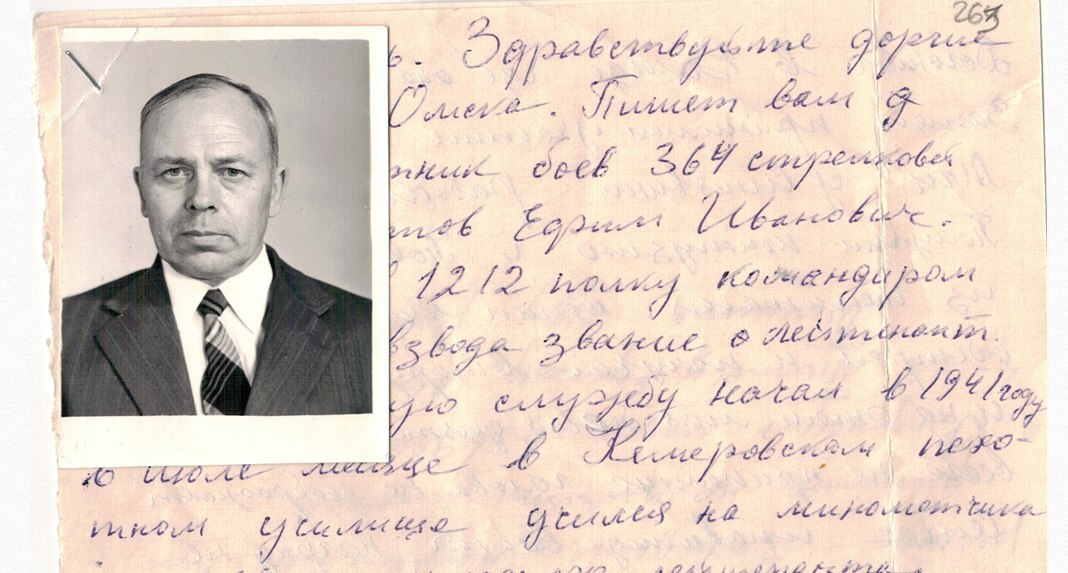 267
ь. Здравствуйте доргие
Омска. Пишет вам д
тник боев 364 стрелковой
тов Ефрим Иванович.
в 1212 полку командиром
взвода звание лейтенант.
ую службу начал в 1941 году
в июле месце в Кемеровском пехо-
тном училище учился на минометчика